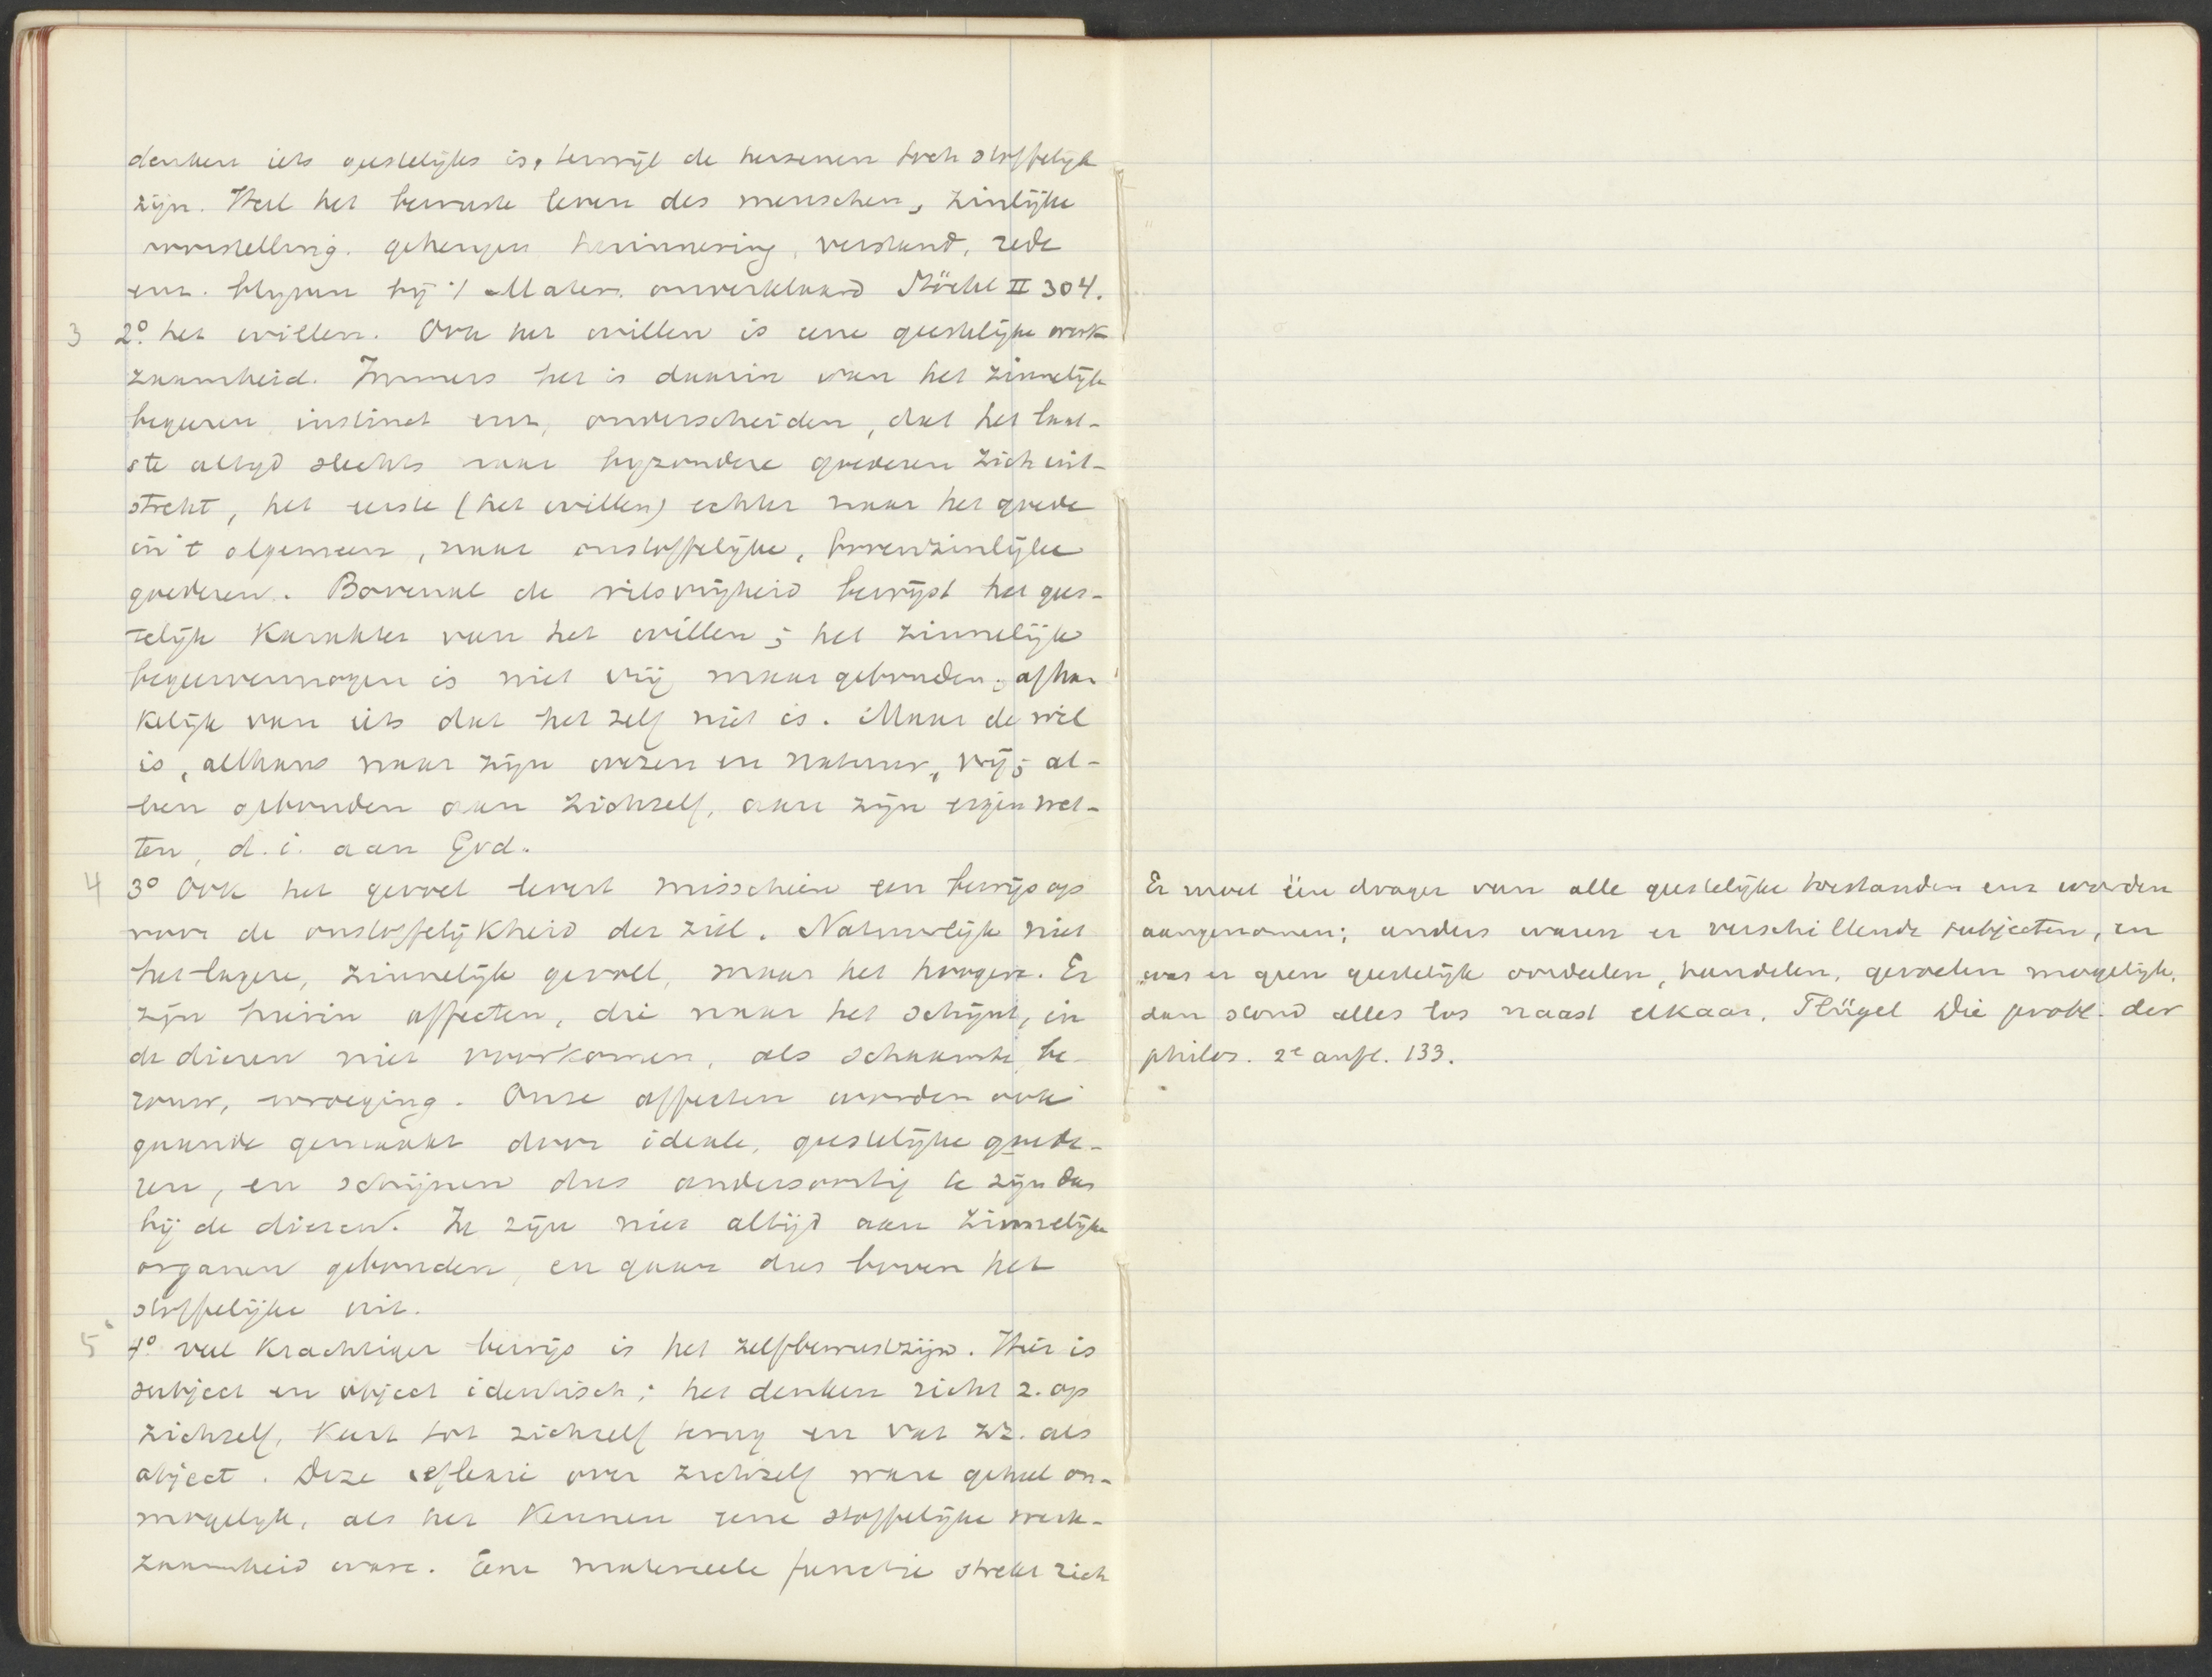 denken iets geestelijks is, terwijl de hersenen toch stoffelijk
zijn. Heel het bewuste leven des menschen, zinlijke
voorstelling. geheugen herinnering, verstand, rede
enz. blijven bij 't Mater. onverklaard Stöckl II 304.
3 2º. het willen. Ook het willen is eene geestelijke werk-
zaamheid. Immers het is daarin van het zinnelijk
begeeren, instinct enz, onderscheiden, dat het laat-
ste altijd slechts naar byzondere goederen zich uit-
strekt, het eerste (het willen) echter naar het goede
in 't algemeen, naar onstoffelijke, bovenzinlijke
goederen. Bovenal de wilsvrijheid bewijst het gees-
telijk karakter van het willen; het zinnelijke
begeervermogen is niet vrij maar gebonden; afhan-
kelijk van iets dat het zelf niet is. Maar de wil
is, althans naar zijn wezen en natuur, vrij; al-
leen gebonden aan zichzelf, aan zijn eigen wet-
ten, d.i. aan God.
4 3º Ook het gevoel levert misschien een bewijs op
voor de onstoffelijkheid der ziel. Natuurlijk niet
het lagere, zinnelijk gevoel, maar het hoogere. Er
zijn hierin affecten, die naar het schijnt, in
de dieren niet voorkomen, als schaamte, be-
rouw, wroeging. Onze affecten worden ook
gaande gemaakt door ideale, geestelijke goede-
ren, en schijnen dus andersoortig te zijn dan
bij de dieren. Ze zijn niet altijd aan zinnelijke
organen gebonden, en gaan dus boven het
stoffelijke uit.
5 4º veel krachtiger bewijs is het zelfbewustzijn. Hier is
subject en object identisch; het denken richt z. op
zichzelf, keert tot zichzelf terug en vat zz. als
object. Deze reflexie over zichzelf ware geheel on-
mogelijk, als het kennen eene stoffelijke werk-
zaamheid ware. Eene materieele functie strekt zich
Er moet één drager van alle geestelijke toestanden enz worden
aangenomen; anders waren er verschillende subjecten, en
was er geen geestelijk oordeelen, handelen, gevoelen mogelijk.
dan stond alles los naast elkaar. Flügel Die probl. der
philos. 2e aufl. 133.